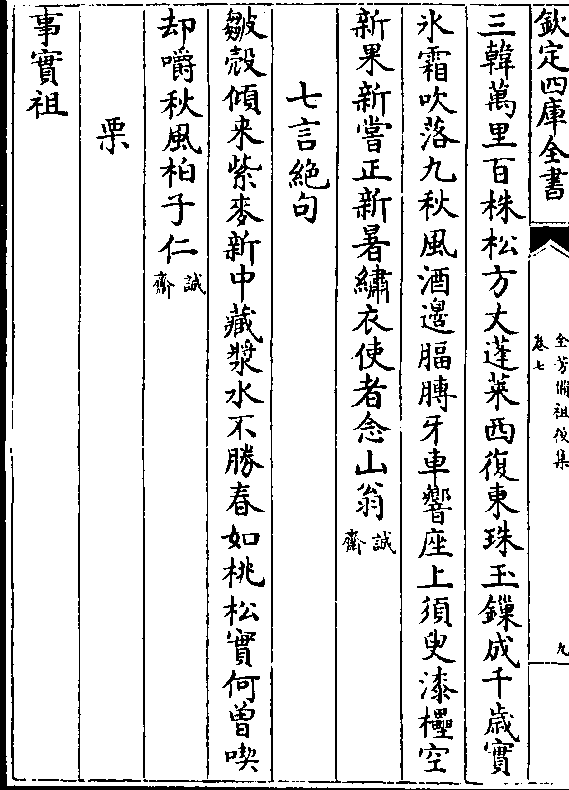 欽定四庫全書
全芳備祖後集
卷七
九
三韓萬里百株松方丈蓬萊西復東珠玉鏁成千歲實
氷霜吹落九秋風酒邊腷膊牙車響座上須臾漆櫑空
新果新嘗正新暑繡衣使者念山翁誠齋
七言絶句
皺殻傾来紫麥新中藏漿水不勝春如桃松實何曽喫
却嚼秋風柏子仁誠齋
栗
事實祖